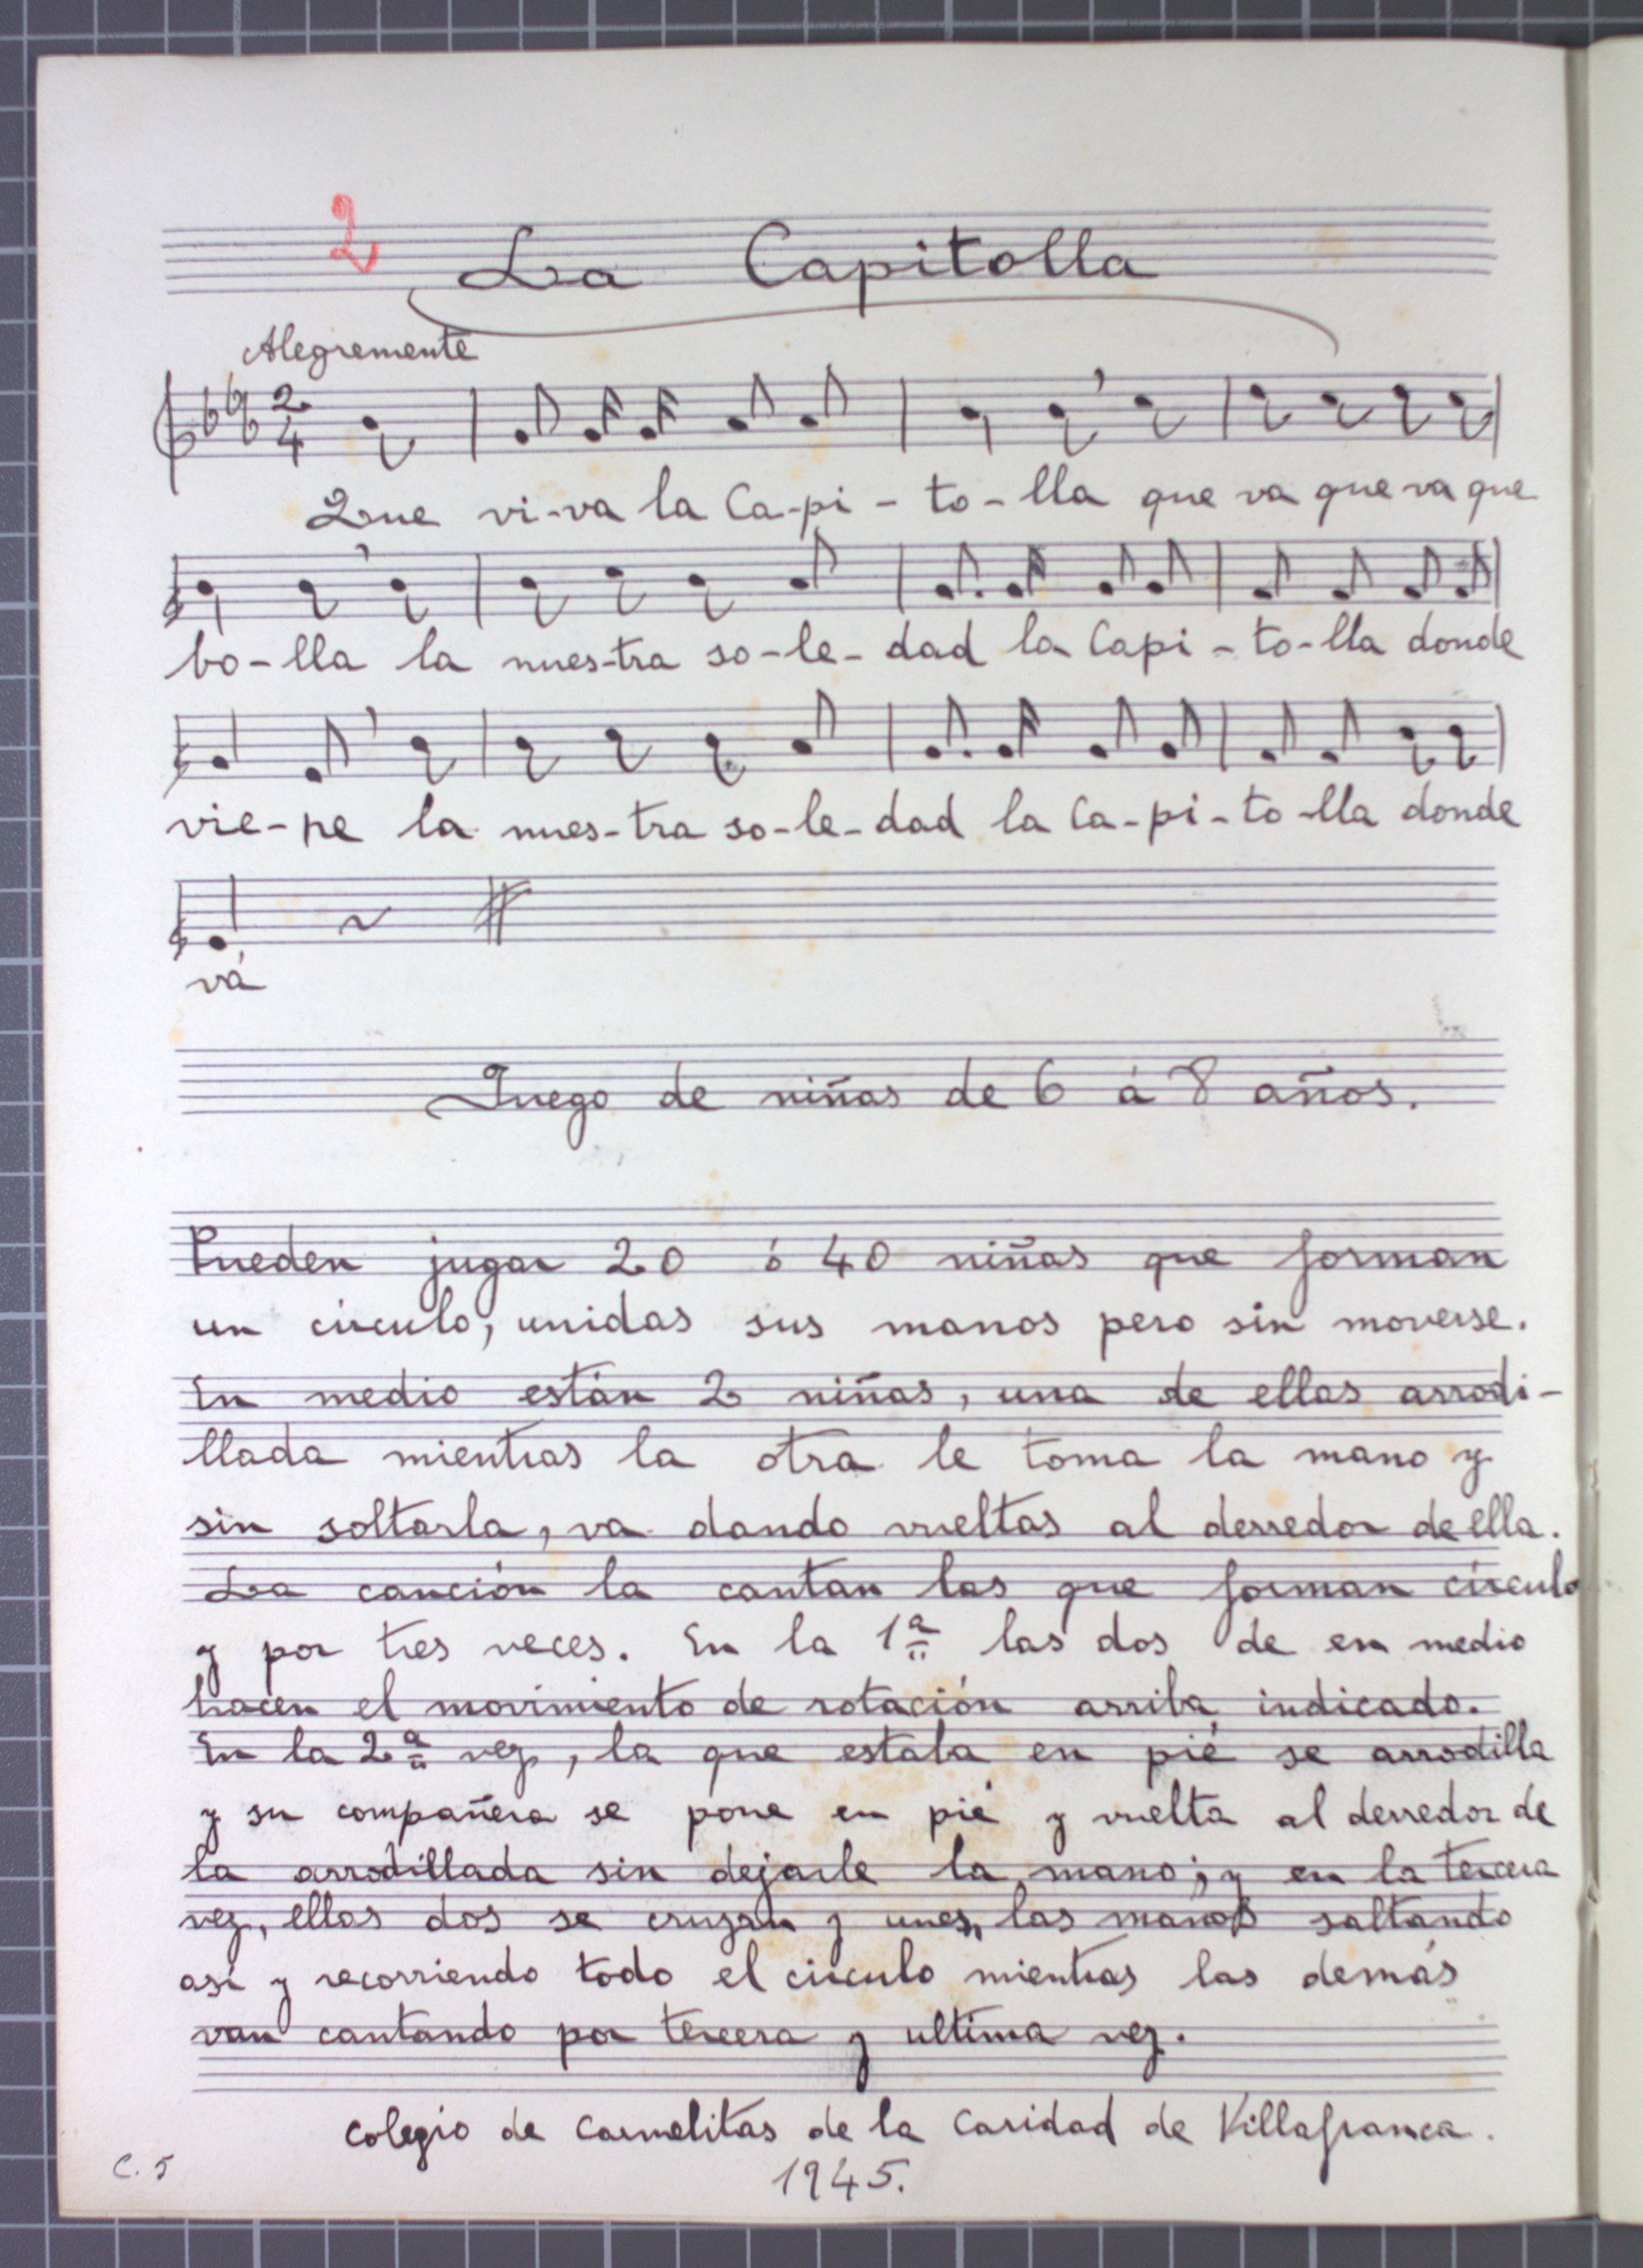 2
La Capitolla
Alegremente
2
4
Que vi-va la Ca-pi-to-lla que va que va que
bo-lla la nues-tra so-le-dad la Capi-to-lla donde
vie-ne la nues-tra so-le-dad la Ca-pi-to-lla donde
vá
Juego de niñas de 6 á 8 años.
Pueden jugar 20 ó 40 niñas que forman
un círculo, unidas sus manos pero sin moverse.
En medio están 2 niñas, una de ellas arrodi-
llada mientras la otra le toma la mano y
sin soltarla, va dando vueltas al derredor de ella.
La canción la cantan las que forman círculo
y por tres veces. En la 1ª las dos de en medio
hacen el movimiento de rotación arriba indicado.
En la 2ª vez, la que estaba en pié se arrodilla
y su compañera se pone en pié y vuelta al derredor de
la arrodillada sin dejarle la mano; y en la tercera
vez, ellas dos se cruzan y unen las manos saltando
así y recorriendo todo el círculo mientras las demás
van cantando por tercera y ultima vez.
Colegio de Carmelitas de la Caridad de Villafranca.
1945.
C. 5